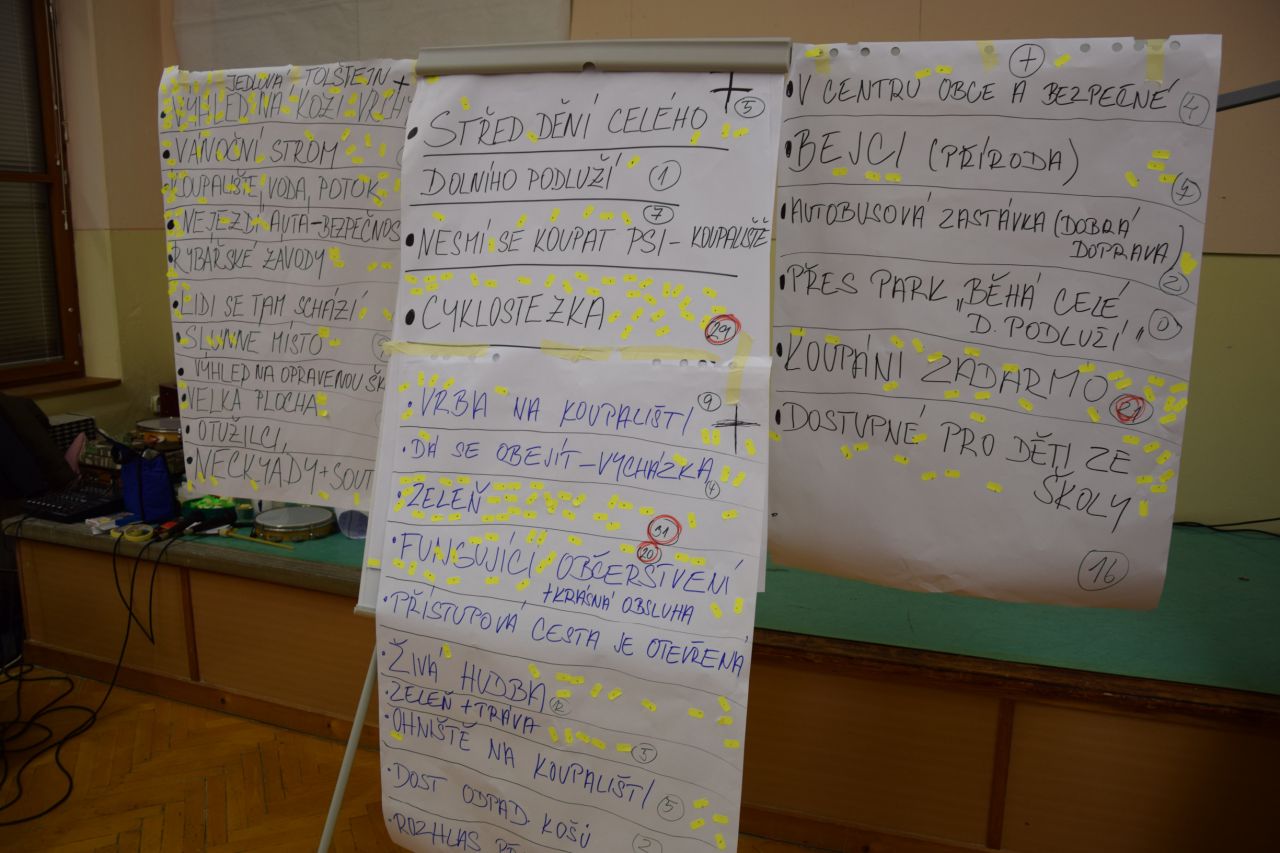 JEDLOVÁ TOLŠTEJN +
• VÝHLED NA KOZÍ VRCH
• VÁNOČNÍ STROM
• KOUPALIŠTĚ, VODA, POTOK
• NEJEZDÍ AUTA-BEZPEČNOS
• RYBÁŘSKÉ ZÁVODY
• LIDI SE TAM SCHÁZÍ
• SLUNNÉ MÍSTO
• VÝHLED NA OPRAVENOU ŠK
• VELKÁ PLOCHA
• OTUŽILCI,
• NECKYÁDY + SOUT
+
• STŘED DĚNÍ CELÉHO 5
DOLNÍHO PODLUŽÍ 1
7
• NESMÍ SE KOUPAT PSI - KOUPALIŠTĚ
• CYKLOSTEZKA 29
+
• VRBA NA KOUPALIŠTI 9
• DÁ SE OBEJÍT - VYCHÁZKA
• ZELEŇ
31
20
• FUNGUJÍCÍ OBČERSTVENÍ
+ KRÁSNÁ OBSLUHA
• PŘÍSTUPOVÁ CESTA JE OTEVŘENÁ
• ŽIVÁ HUDBA 12
• ZELEŇ + TRÁVA 5
• OHNIŠTĚ NA KOUPALIŠTI 5
• DOST ODPAD. KOŠŮ 2
• ROZHLAS
+
• V CENTRU OBCE A BEZPEČNÉ 4
• BEJCI (PŘÍRODA)
• AUTOBUSOVÁ ZASTÁVKA (DOBRÁ
DOPRAVA) 2
• PŘES PARK „BĚHÁ CELÉ
D. PODLUŽÍ" 0
• KOUPÁNÍ ZADARMO 21
• DOSTUPNÉ PRO DĚTI ZE
ŠKOLY
16